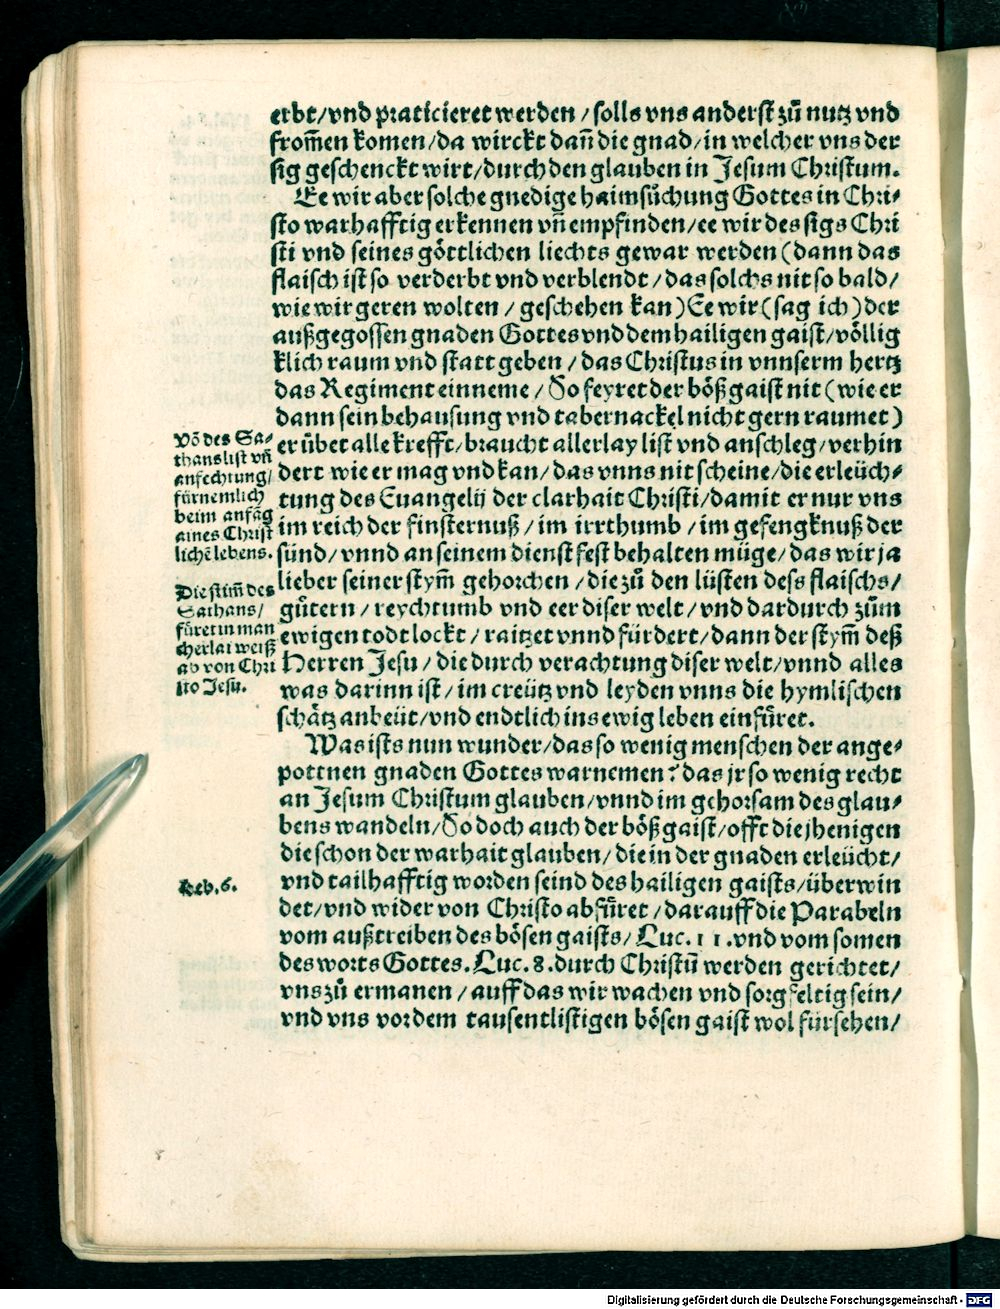 erbt/vnd praticieret werden/solls vns anderst zů nutz vnd
from̃en komen/da wirckt dañ die gnad/in welcher vns der
sig geschenckt wirt/durch den glauben in Jesum Christum.
Ee wir aber solche gnedige haimsůchung Gottes in Chri-
sto warhafftig erkennen vñ empfinden/ee wir des sigs Chri
sti vnd seines göttlichen liechts gewar werden (dann das
flaisch ist so verderbt vnd verblendt/das solchs nit so bald/
wie wir geren wolten/geschehen kan) Ee wir (sag ich) der
außgegossen gnaden Gottes vnd dem hailigen gaist/völlig
klich raum vnd statt geben/das Christus in vnnserm hertz
das Regiment einneme/So feyret der böß gaist nit (wie er
dann sein behausung vnd tabernackel nicht gern raumet)
er übet alle krefft/braucht allerlay list vnd anschleg/verhin
dert wie er mag vnd kan/das vnns nit scheine/die erleüch-
tung des Euangelij der clarhait Christi/damit er nur vns
im reich der finsternuß/im irrthumb/im gefengknuß der
sünd/vnnd an seinem dienst fest behalten müge/das wir ja
lieber seiner stym̃ gehorchen/die zů den lüsten dess flaischs/
gůtern/reychtumb vnd eer diser welt/vnd dardurch zům
ewigen todt lockt/raitzet vnnd fürdert/dann der stym̃ deß
Herren Jesu/die durch verachtung diser welt/vnnd alles
was darinn ist/im creütz vnd leyden vnns die hymlischen
schätz anbeüt/vnd endtlich ins ewig leben einfůret.
Was ists nun wunder/das so wenig menschen der ange-
pottnen gnaden Gottes warnemen? das jr so wenig recht
an Jesum Christum glauben/vnnd im gehorsam des glau-
bens wandeln/So doch auch der böß gaist/offt die jhenigen
die schon der warhait glauben/die in der gnaden erleücht/
vnd tailhafftig worden seind des hailigen gaists/überwin
det/vnd wider von Christo abfůret/darauff die Parabeln
vom außtreiben des bösen gaists/Luc. 11. vnd vom somen
des worts Gottes. Luc. 8. durch Christũ werden gerichtet/
vns zů ermanen/auff das wir wachen vnd sorgfeltig sein/
vnd vns vor dem tausentlistigen bösen gaist wol fürsehen/
Võ des Sa-
thans list vñ
anfechtung/
fürnemlich
beim anfãg
aines Christ
lichẽ lebens.
Die stim̃ des
Sathans/
fůret in man
cherlai weiß
ab von Chri
sto Jesu.
Heb. 6.
Digitalisierung gefördert durch die Deutsche Forschungsgemeinschaft - DFG